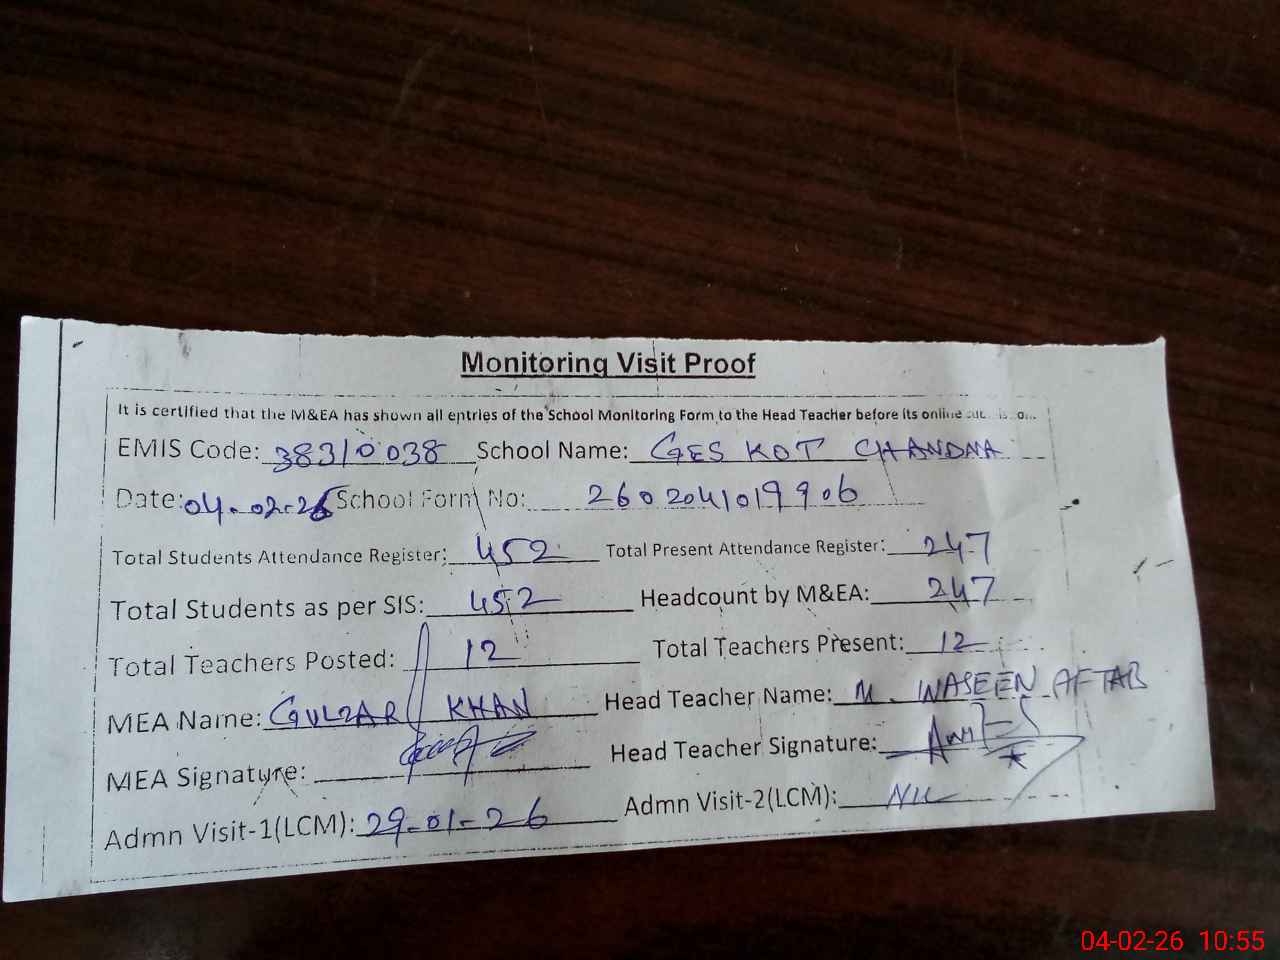 Monitoring Visit Proof
It is certified that the M&EA has shown all entries of the School Monitoring Form to the Head Teacher before its online
EMIS Code: 38310038 School Name: GES KOT CHANDNA
Date: 04-02-26 School Form No: 2602041019906
Total Students Attendance Register: 452 Total Present Attendance Register: 247
Total Students as per SIS: 452 Headcount by M&EA: 247
Total Teachers Posted: 12 Total Teachers Present: 12
MEA Name: GULZAR KHAN Head Teacher Name: M. WASEEN AFTAB
MEA Signature: Head Teacher Signature:
Admn Visit-1(LCM): 29-01-26 Admn Visit-2(LCM): NIL
04-02-26 10:55